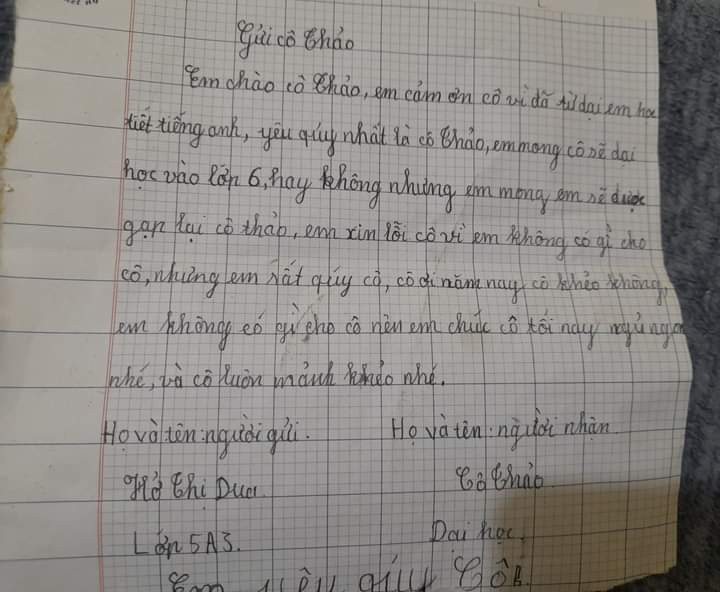 Gửi cô Thảo
Em chào cô Thảo, em cảm ơn cô vì đã từ dại em học
tiết tiếng anh, yêu quý nhất là cô Thảo, em mong cô sẽ dai
học vào lớp 6, hay không nhưng em mong em sẽ được
gạp lại cô thảo, em xin lỗi cô vì em không có gì cho
cô, nhưng em rất qúy cô, cô ơi năm nay cô khẻo không,
em không có gì cho cô nên em chúc cô tối nay ngủ ngon
nhé, và cô luôn mảnh khẻo nhé.
Họ và tên: người gửi. Họ và tên: người nhận
Hờ Thị Dua Cô Thảo
Lớp 5A3. Dại học.
Em yêu qúy Cô